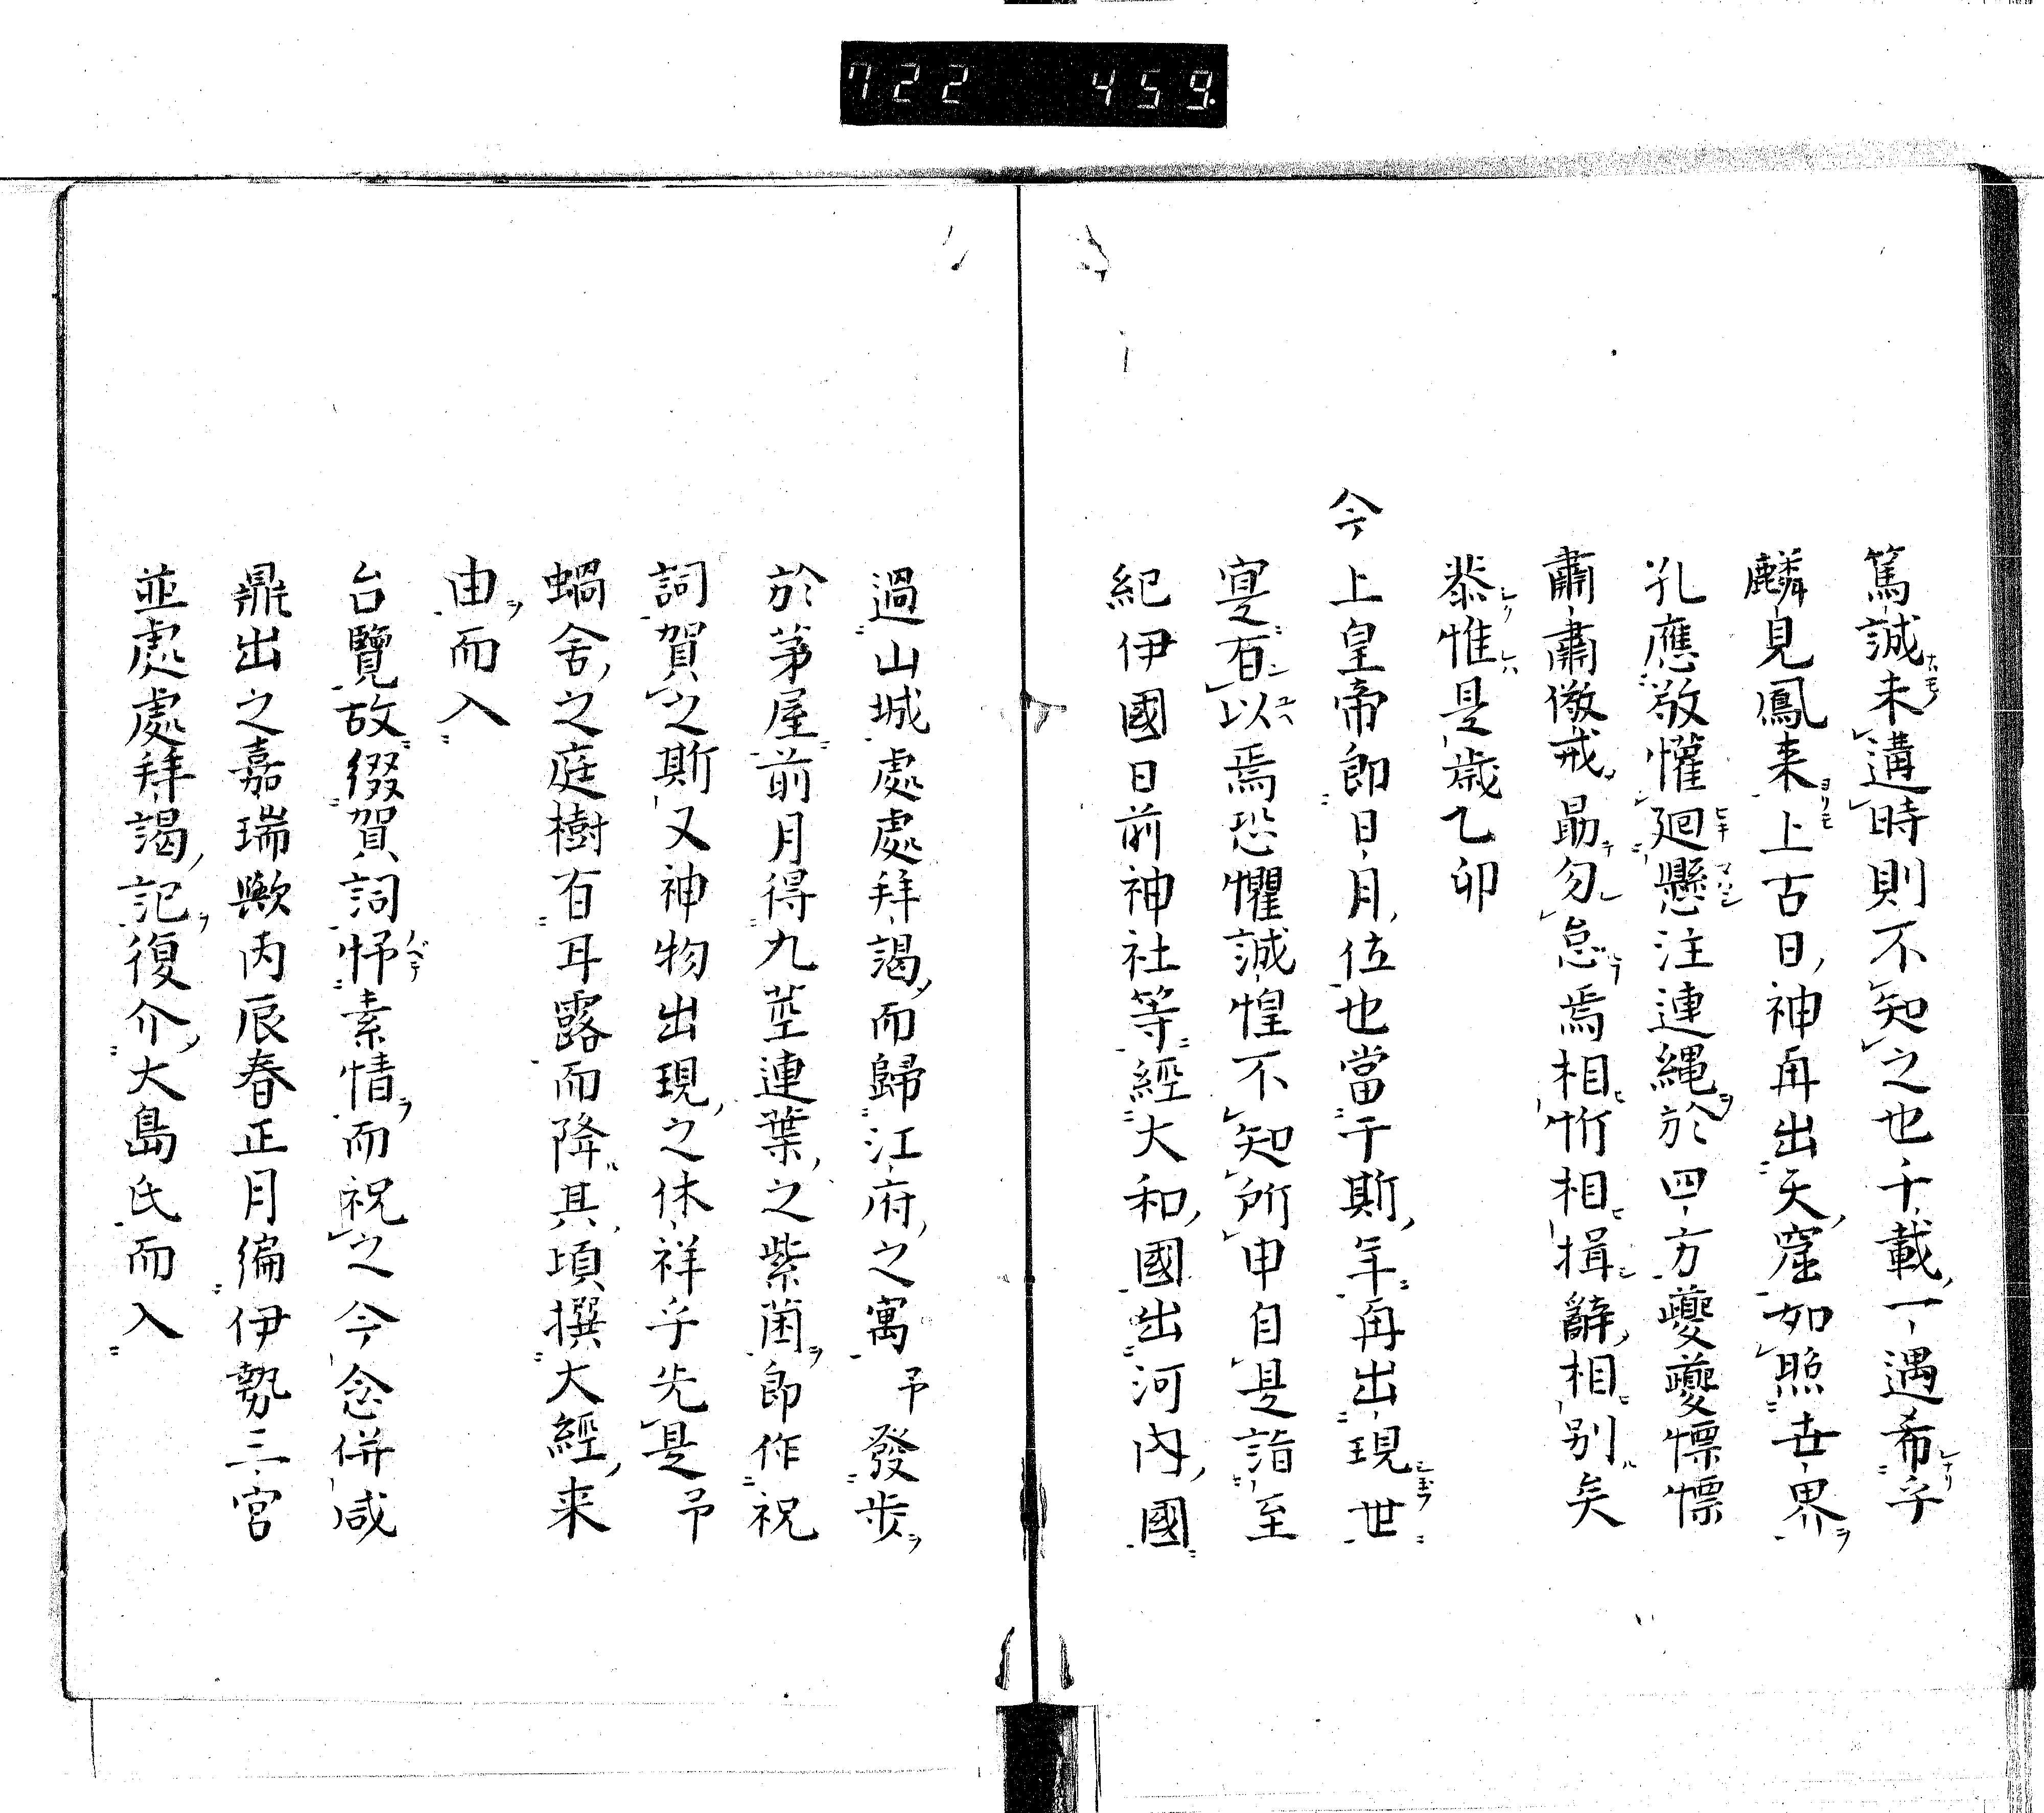 722 459.
篤誠未遘時則不知之也千載一遇希乎
麟見鳳来上古日神再出天窟如照世界
孔應敬懽廻懸注連縄於四方夔夔慓慓
肅肅儆戒勗勿怠焉相忻相揖辭相別矣
恭惟是歳乙卯
今上皇帝即日月位也當于斯年再出現世
寔有以焉恐懼誠惶不知所申自是詣至
紀伊國日前神社等經大和國出河内國
過山城處處拜謁而歸江府之寓予發歩
於茅屋前月得九莖連葉之紫菌即作祝
詞賀之斯又神物出現之休祥乎先是予
蝸舍之庭樹有耳露而降其頃撰大經来
由而入
台覽故綴賀詞怀素情而祝之今念併咸
鼎出之嘉瑞歟丙辰春正月編伊勢三宮
並處處拜謁記復介大島氏而入